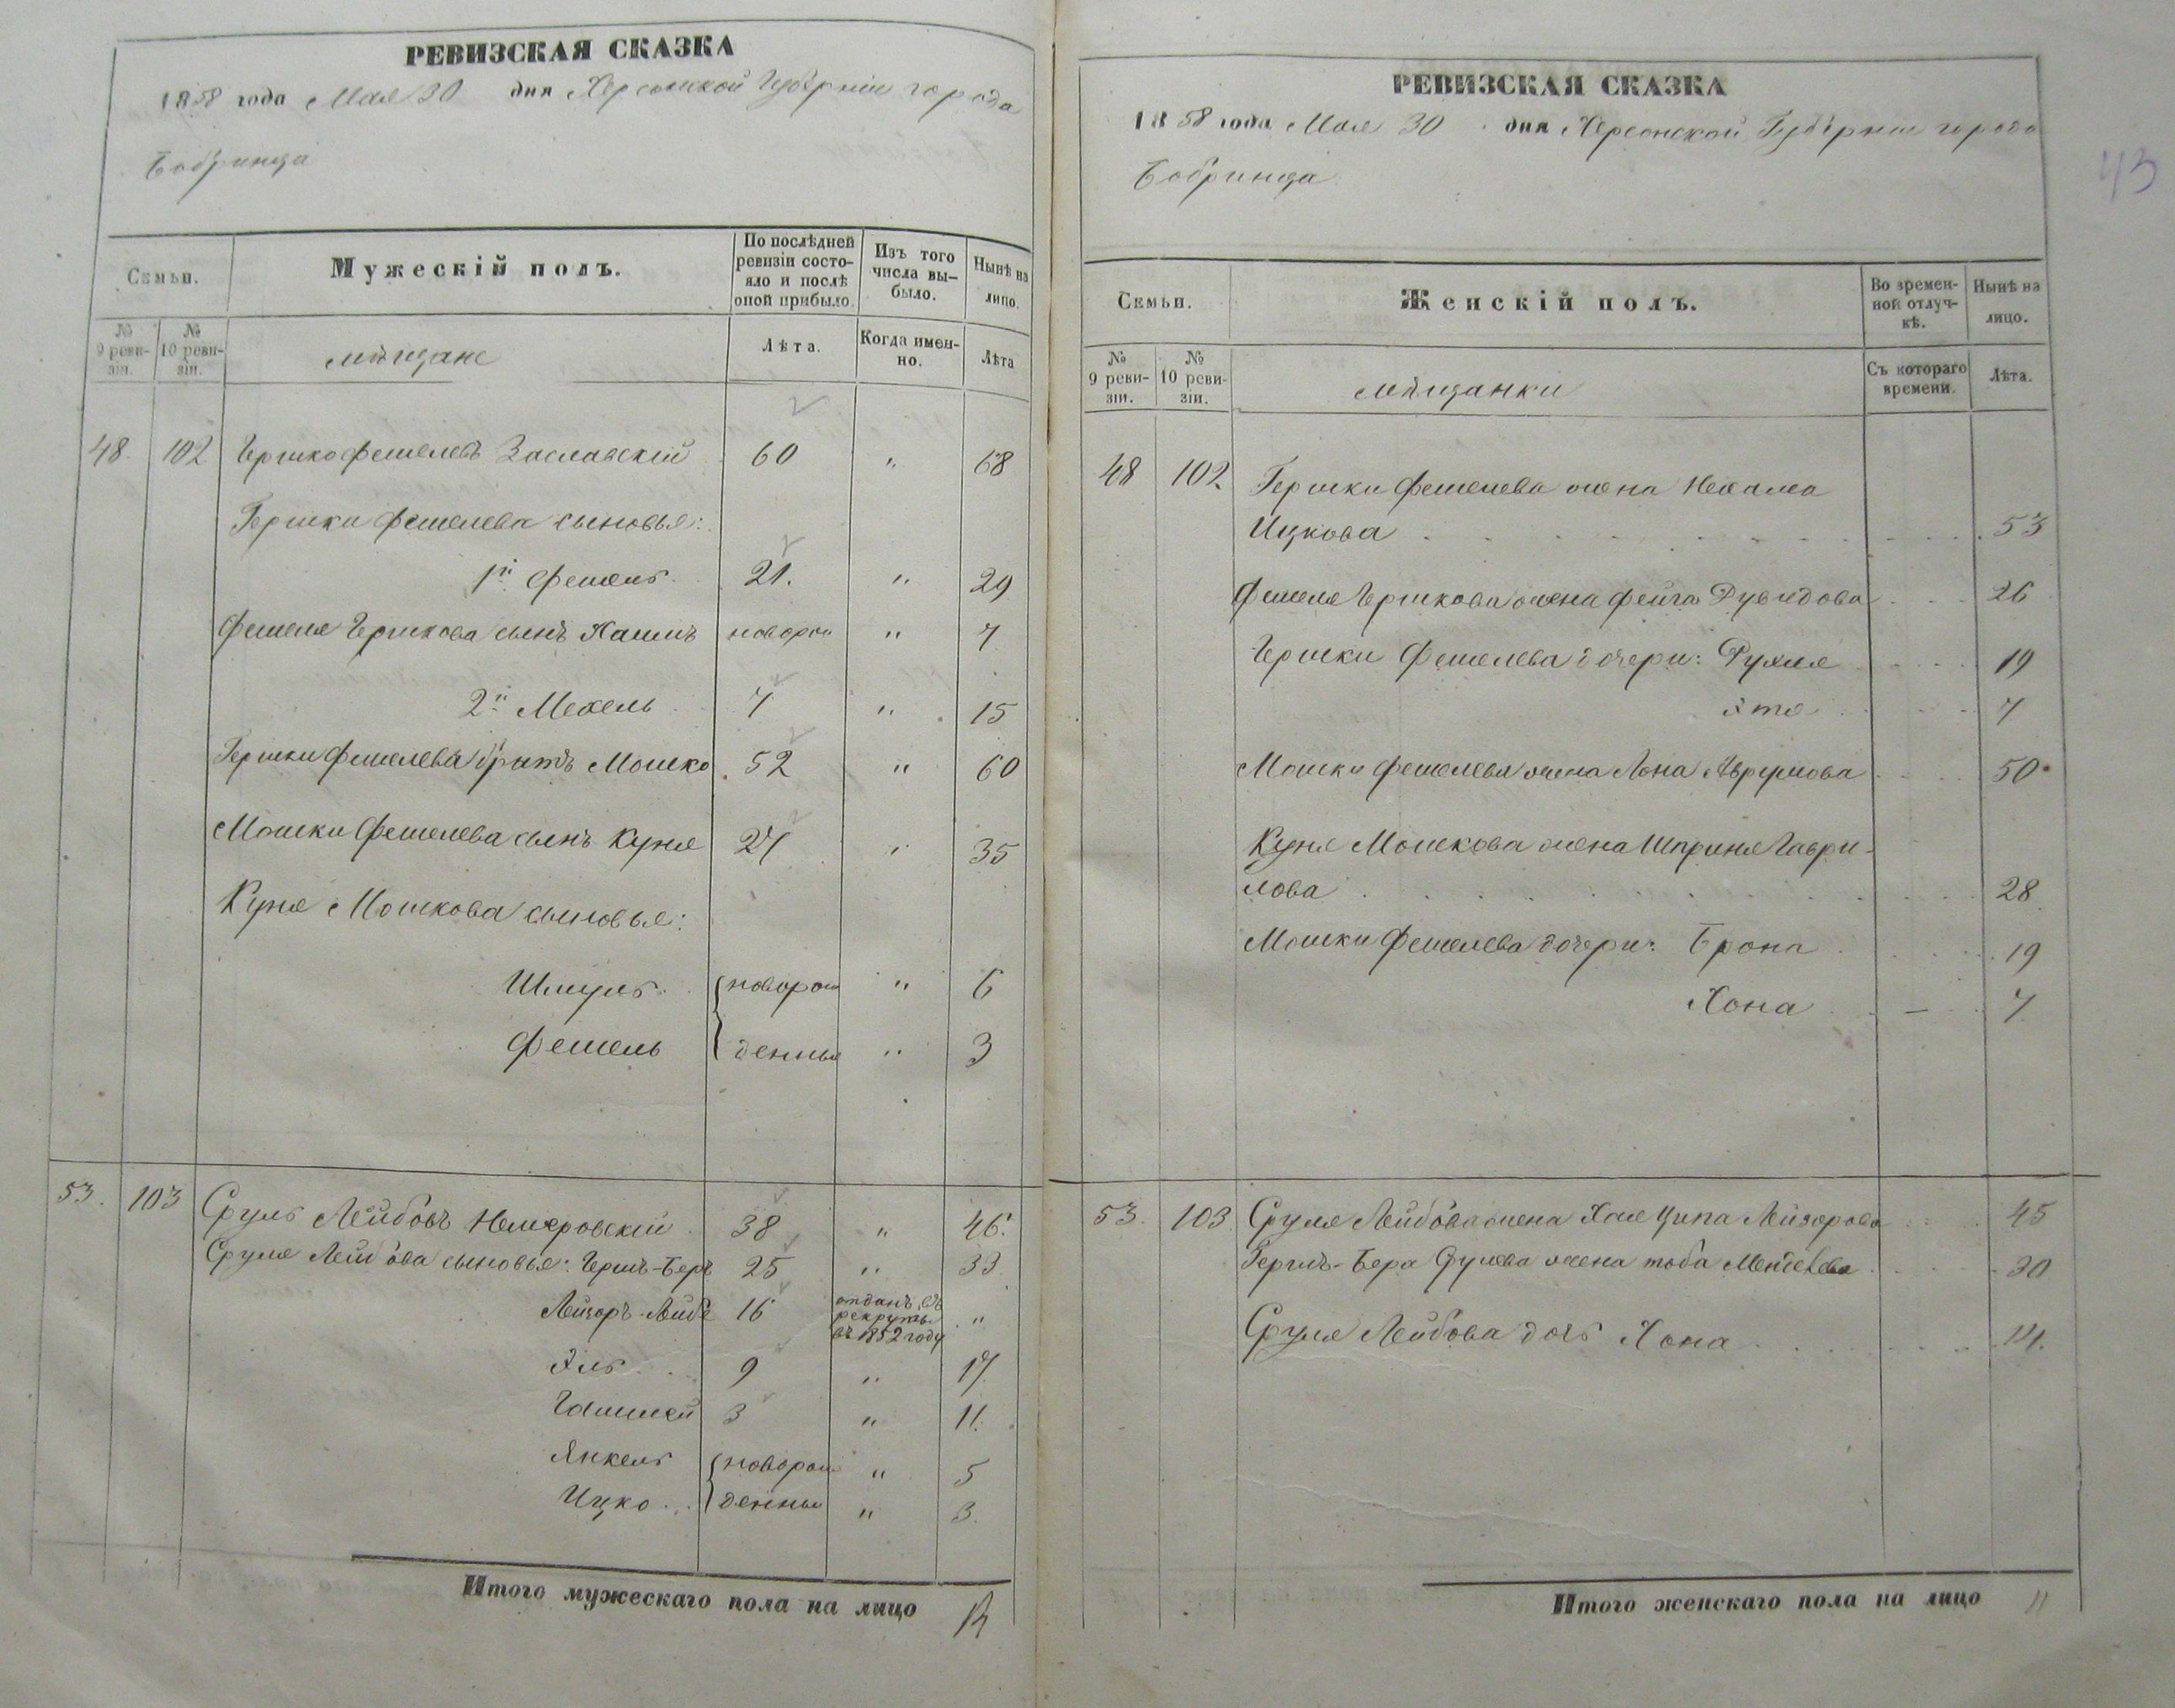 РЕВИЗСКАЯ СКАЗКА
1858 года Мая 30 дня Херсонской Губерніи города
Бобринца
Семьи.
Мужескій полъ.
По послѣдней ревизіи состояло и послѣ оной прибыло.
Изъ того числа выбыло.
Нынѣ на лицо.
№ 9 ревизіи.
№ 10 ревизіи.
мѣщане
Лѣта.
Когда именно.
Лѣта
48. 102 Гершко Фешелевъ Заславскій 60 " 68
Гершки Фешелева сыновья:
1й Фешель 21. " 29
Фешеля Гершкова сынъ Хаимъ новорож " 7
2й Мехель 7 " 15
Гершки Фешелева братъ Мошко 52 " 60
Мошки Фешелева сынъ Куня 27 " 35
Куня Мошкова сыновья:
Шмуль новорож " 6
Фешель денные " 3
53. 103 Сруль Лейбовъ Немеровскій 38 " 46.
Сруля Лейбова сыновья: Гершъ-Беръ 25 " 33
Лейзоръ-Лейба 16 отданъ въ рекруты въ 1852 году "
Эль 9 " 17.
3 " 11.
Янкель новорож " 5
Ицко денные " 3.
Итого мужескаго пола на лицо
РЕВИЗСКАЯ СКАЗКА
1858 года Мая 30 дня Херсонской Губерніи города
Бобринца
43
Семьи.
Женскій полъ.
Во временной отлучкѣ.
Нынѣ на лицо.
№ 9 ревизіи.
№ 10 ревизіи.
мѣщанки
Съ котораго времени.
Лѣта.
48 102. Гершки Фешелева жена Нехама
Ицкова 53
Фешеля Гершкова жена Фейга Дувидова 26
Гершки Фешелева дочери: Рухля 19
Эта 7
Мошки Фешелева жена Хона Аврумова 50
Куня Мошкова жена Шприня Гаври-
лова 28
Мошки Фешелева дочери: Брона 19
Хона — 7
53. 103. Сруля Лейбова жена Хая Ципа Лейзорова 45
Гершъ-Бера Срулева жена Тоба 30
Сруля Лейбова дочь Хона 14.
Итого женскаго пола на лицо 11